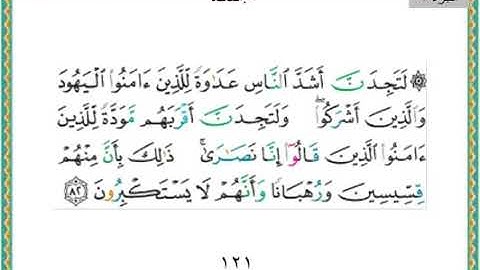 ۞ لَتَجِدَنَّ أَشَدَّ ٱلنَّاسِ عَدَٰوَةً لِّلَّذِينَ ءَامَنُوا۟ ٱلْيَهُودَ
وَٱلَّذِينَ أَشْرَكُوا۟ ۖ وَلَتَجِدَنَّ أَقْرَبَهُم مَّوَدَّةً لِّلَّذِينَ
ءَامَنُوا۟ ٱلَّذِينَ قَالُوٓا۟ إِنَّا نَصَٰرَىٰ ۚ ذَٰلِكَ بِأَنَّ مِنْهُمْ
قِسِّيسِينَ وَرُهْبَانًا وَأَنَّهُمْ لَا يَسْتَكْبِرُونَ ٨٢
١٢١